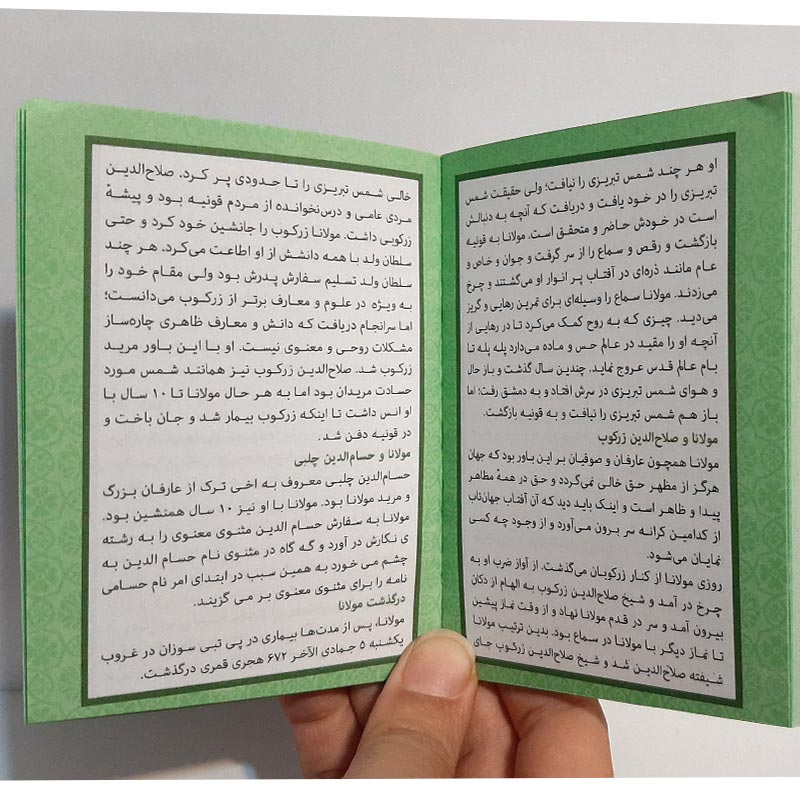 او هر چند شمس تبریزی را نیافت؛ ولی حقیقت شمس
تبریزی را در خود یافت و دریافت که آنچه به دنبالش
است در خودش حاضر و متحقق است. مولانا به قونیه
بازگشت و رقص و سماع را از سر گرفت و جوان و خاص و
عام مانند ذره‌ای در آفتاب پر انوار او می‌گشتند و چرخ
می‌زدند. مولانا سماع را وسیله‌ای برای تمرین رهایی و گریز
می‌دید. چیزی که به روح کمک می‌کرد تا در رهایی از
آنچه او را مقید در عالم حس و ماده می‌دارد پله پله تا
بام عالم قدس عروج نماید. چندین سال گذشت و باز حال
و هوای شمس تبریزی در سرش افتاد و به دمشق رفت؛ اما
باز هم شمس تبریزی را نیافت و به قونیه بازگشت.
مولانا و صلاح‌الدین زرکوب
مولانا همچون عارفان و صوفیان بر این باور بود که جهان
هرگز از مظهر حق خالی نمی‌گردد و حق در همهٔ مظاهر
پیدا و ظاهر است و اینک باید دید که آن آفتاب جهان‌تاب
از کدامین کرانه سر برون می‌آورد و از وجود چه کسی
نمایان می‌شود.
روزی مولانا از کنار زرکوبان می‌گذشت. از آواز ضرب او به
چرخ در آمد و شیخ صلاح‌الدین زرکوب به الهام از دکان
بیرون آمد و سر در قدم مولانا نهاد و از وقت نماز پیشین
تا نماز دیگر با مولانا در سماع بود. بدین ترتیب مولانا
شیفته صلاح‌الدین شد و شیخ صلاح‌الدین زرکوب جای
خالی شمس تبریزی را تا حدودی پر کرد. صلاح‌الدین
مردی عامی و درس‌نخوانده از مردم قونیه بود و پیشهٔ
زرکوبی داشت. مولانا زرکوب را جانشین خود کرد و حتی
سلطان ولد با همه دانشش از او اطاعت می‌کرد. هر چند
سلطان ولد تسلیم سفارش پدرش بود ولی مقام خود را
به ویژه در علوم و معارف برتر از زرکوب می‌دانست؛
اما سرانجام دریافت که دانش و معارف ظاهری چاره‌ساز
مشکلات روحی و معنوی نیست. او با این باور مرید
زرکوب شد. صلاح‌الدین زرکوب نیز همانند شمس مورد
حسادت مریدان بود اما به هر حال مولانا تا ۱۰ سال با
او انس داشت تا اینکه زرکوب بیمار شد و جان باخت و
در قونیه دفن شد.
مولانا و حسام‌الدین چلبی
حسام‌الدین چلبی معروف به اخی ترک از عارفان بزرگ
و مرید مولانا بود. مولانا با او نیز ۱۰ سال همنشین بود.
مولانا به سفارش حسام الدین مثنوی معنوی را به رشته
ی نگارش در آورد و گه گاه در مثنوی نام حسام الدین به
چشم می خورد به همین سبب در ابتدای امر نام حسامی
نامه را برای مثنوی معنوی بر می گزیند.
درگذشت مولانا
مولانا، پس از مدت‌ها بیماری در پی تبی سوزان در غروب
یکشنبه ۵ جمادی الآخر ۶۷۲ هجری قمری درگذشت.